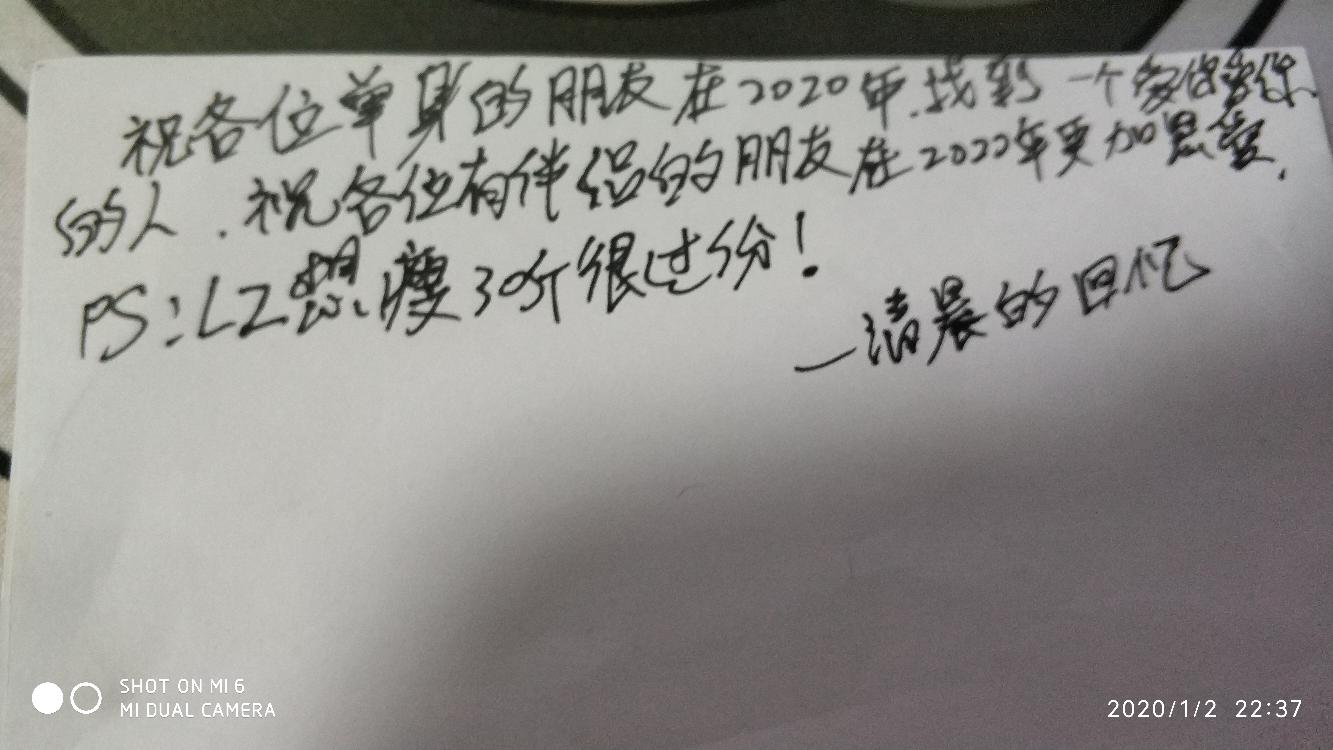 祝各位单身的朋友在2020年.找到一个爱你爱你
的人.祝各位有伴侣的朋友在2020年更加恩爱.
PS:LZ想瘦30斤很过份!
—清晨的回忆
SHOT ON MI 6
MI DUAL CAMERA
2020/1/2 22:37